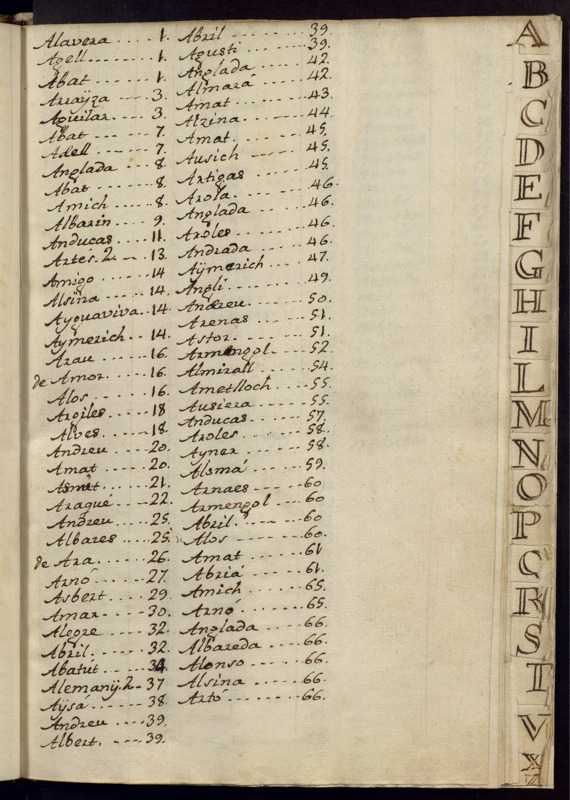 Alavera .... 1.
Agell ....... 1.
Abat .... 1.
Arayza .... 3.
Aguilar .... 3.
Abat .... 7.
Adell .... 7.
Anglada .... 8
Abat .... 8.
Amich .... 8.
Albarin .... 9.
Anducas .... 11.
Artés. 2 .... 13.
Amigo .... 14
Alsina .... 14.
Ayguaviva .. 14.
Aymerich ... 14.
Arau .... 16.
de Amor .... 16.
Alos .... 16.
Argiles .... 18
Alves .... 18.
Andreu .... 20.
Amat .... 20.
.... 21.
Araqué .... 22.
Andreu .... 25.
Albares .... 25.
de Ara .... 26.
Arnó .... 27.
Asbert .... 29.
Amar .... 30.
Alegre .... 32.
Abril .... 32.
Abatút .... 34
Alemany. 2 .. 37
Aÿsá .... 38.
Andreu .... 39.
Albert .... 39.
Abril .... 39.
Agusti .... 39.
Anglada .... 42.
Almará .... 42.
Amat .... 43.
Alzina .... 44.
Amat .... 45.
Ausich .... 45.
Artigas .... 45.
Arola .... 46.
Anglada .... 46.
Aroles .... 46.
Andrada .... 46.
Aÿmerich .... 47.
Angli .... 49.
Andreu .... 50.
Arenas .... 51.
Astor .... 51.
Armengol .... 52
Almirall .... 54.
Ametlloch .... 55.
Ausiera .... 55.
Anducas .... 57.
Aroles .... 58.
Ayner .... 58.
Alsmá .... 59.
Arnaes .... 60
Armengol .... 60
Abril .... 60
Alos .... 60.
Amat .... 61
Abriá .... 61.
Amich .... 65.
Arnó .... 65.
Anglada .... 66.
Albareda .... 66.
Alonso .... 66.
Alsina .... 66.
Artó .... 66.
A
B
C
D
E
F
G
H
I
L
M
N
O
P
C
R
S
T
V
X
Z